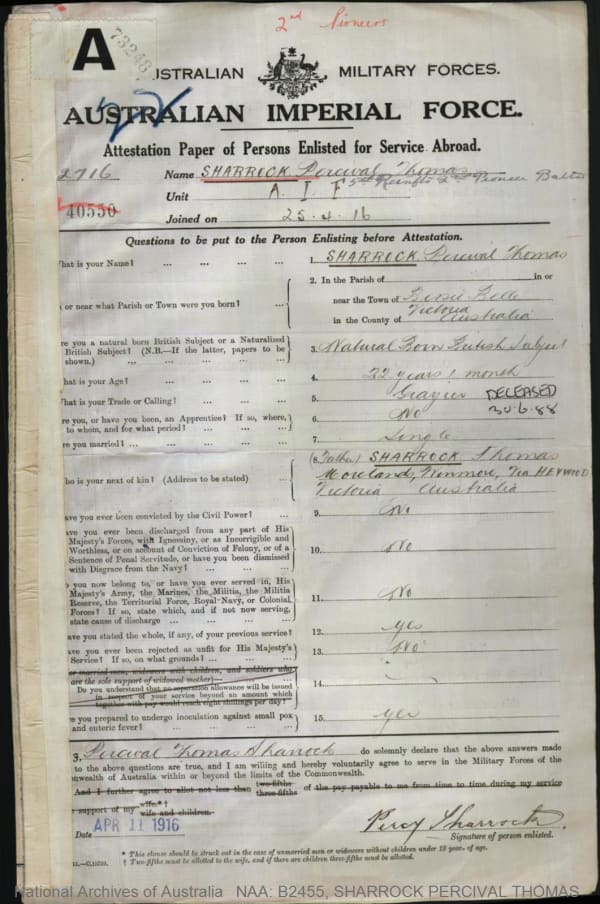 2nd Pioneers
A
73248
AUSTRALIAN MILITARY FORCES.
AUSTRALIAN IMPERIAL FORCE.
Attestation Paper of Persons Enlisted for Service Abroad.
2716 Name SHARROCK Percival Thomas
5th Reinfts 2nd Pioneer Battn
Unit A. I. F
40550
Joined on 25.4.16
Questions to be put to the Person Enlisting before Attestation.
hat is your Name? ... ... ... ... 1. SHARROCK Percival Thomas
2. In the Parish of in or
or near what Parish or Town were you born? ... near the Town of
in the County of Victoria Australia
re you a natural born British Subject or a Naturalised
British Subject? (N.B.—If the latter, papers to be
shown.) ... ... ... ... 3. Natural Born British Subject
hat is your Age? ... ... ... ... 4. 22 years 1 month
hat is your Trade or Calling? ... ... ... 5. Grazier DECEASED
30.6.88
re you, or have you been, an Apprentice? If so, where,
to whom, and for what period? ... ... ... 6. No
re you married? ... ... ... ... 7. Single
ho is your next of kin? (Address to be stated) ... 8. (Father) SHARROCK Thomas
Via HEYWOOD
Victoria Australia
ave you ever been convicted by the Civil Power? ... 9. No
ave you ever been discharged from any part of His
Majesty's Forces, with Ignominy, or as Incorrigible and
Worthless, or on account of Conviction of Felony, or of a
Sentence of Penal Servitude, or have you been dismissed
with Disgrace from the Navy? ... ... ... 10. No
you now belong to, or have you ever served in, His
Majesty's Army, the Marines, the Militia, the Militia
Reserve, the Territorial Force, Royal Navy, or Colonial
Forces? If so, state which, and if not now serving,
state cause of discharge ... ... ... 11. No
ave you stated the whole, if any, of your previous service? 12. yes
ave you ever been rejected as unfit for His Majesty's
Service? If so, on what grounds? ... ... ... 13. No
or married men, widowers with children, and soldiers who
are the sole support of widowed mother)—
Do you understand that no separation allowance will be issued
in respect of your service beyond an amount which
together with pay would reach eight shillings per day? 14.
re you prepared to undergo inoculation against small pox
and enteric fever? ... ... ... ... 15. yes
3, Percival Thomas Sharrock do solemnly declare that the above answers made
to the above questions are true, and I am willing and hereby voluntarily agree to serve in the Military Forces of the
nwealth of Australia within or beyond the limits of the Commonwealth.
And I further agree to allot not less than two-fifths three-fifths of the pay payable to me from time to time during my service
support of my wife.*†
wife and children.
Date APR 11 1916 Percy Sharrock.
Signature of person enlisted.
* This clause should be struck out in the case of unmarried men or widowers without children under 18 years of age.
† Two-fifths must be allotted to the wife, and if there are children three-fifths must be allotted.
National Archives of Australia NAA: B2455, SHARROCK PERCIVAL THOMAS